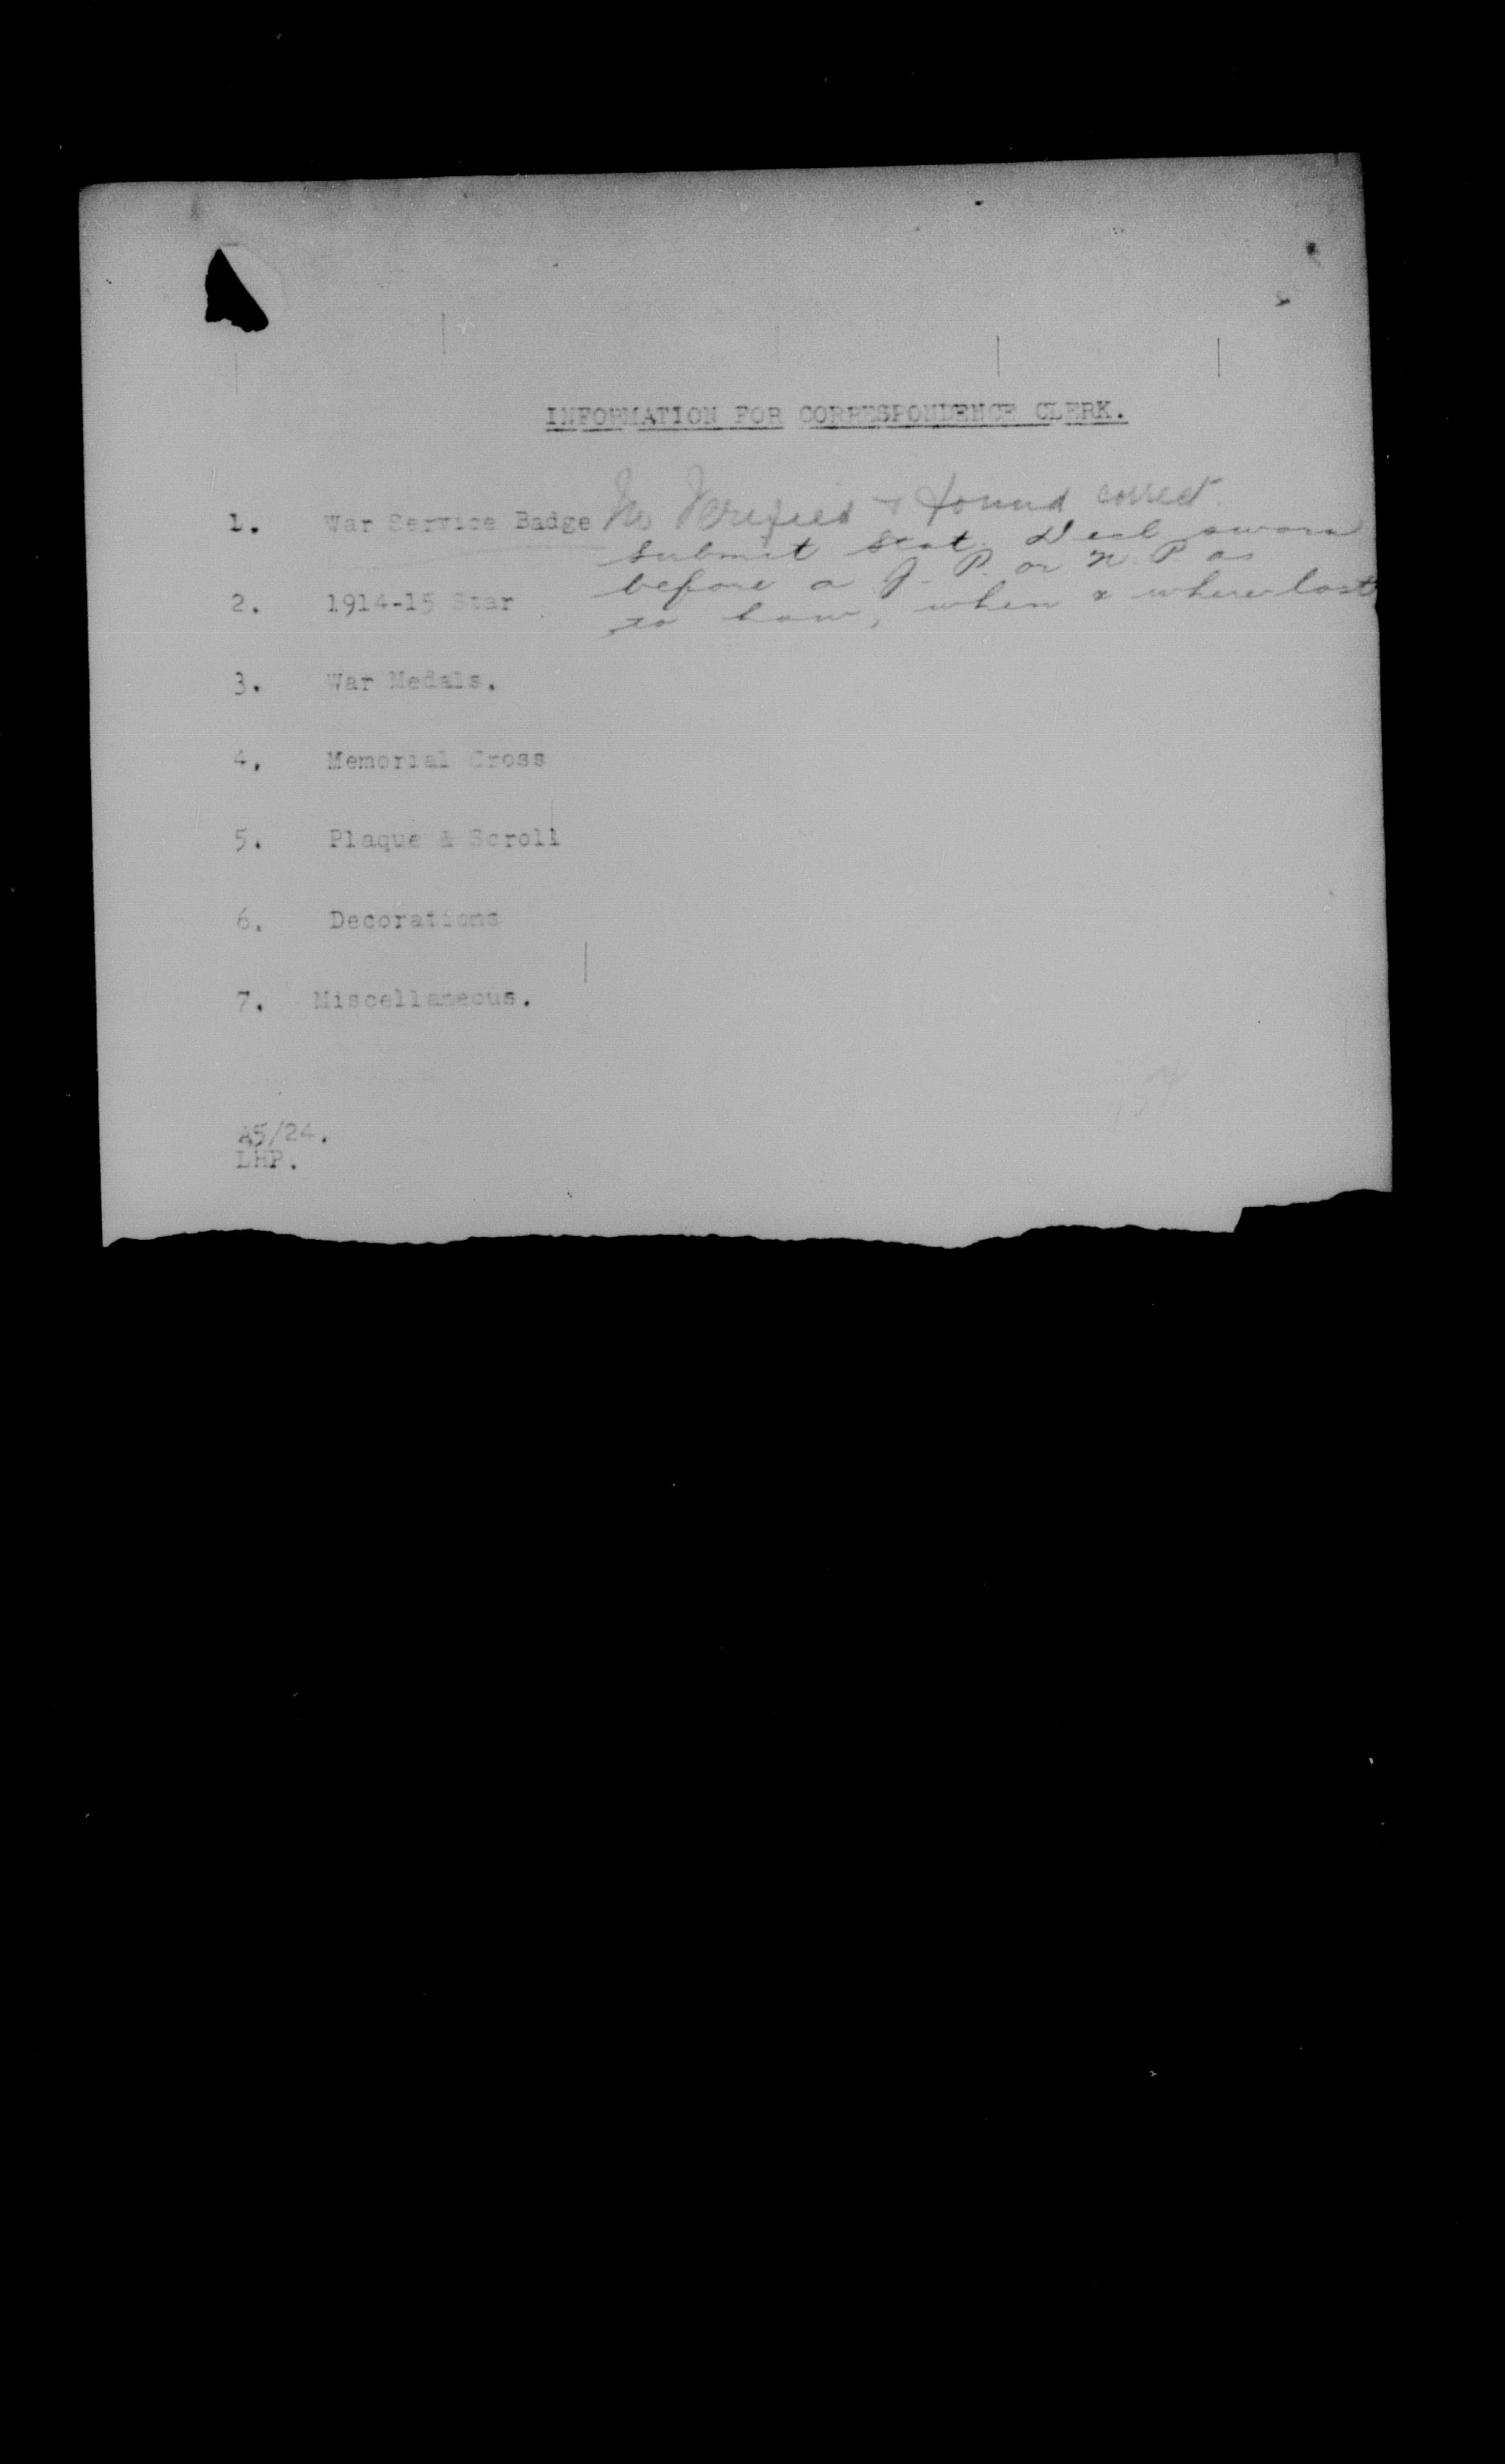 INFORMATION FOR CORRESPONDENCE CLERK.
1. War Service Badge No Verified & found correct.
Submit Stat. Decl sworn
before a J. P. or N. P. as
2. 1914-15 Star
to how, when & where lost
3. War Medals.
4. Memorial Cross
5. Plaque & Scroll
6. Decorations
7. Miscellaneous.
A5/24.
LHP.